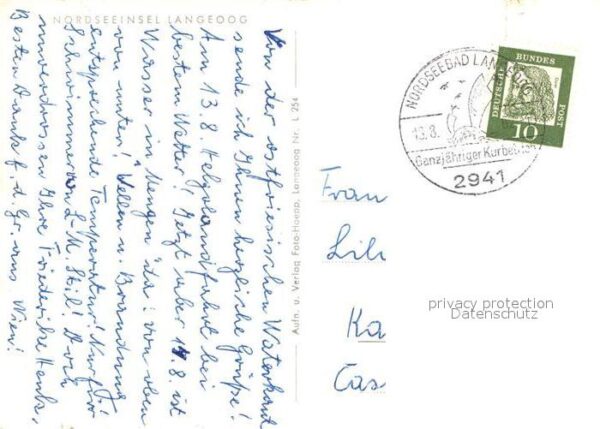 NORDSEEINSEL LANGEOOG
Von der ostfriesischen Waterkant
sende ich Ihnen herzliche Grüße!
Am 13.8. Helgolandfahrt bei
bestem Wetter! Jetzt aber 14.8. ist
Wasser in Mengen da: von oben
von unten! Wellen u. Brandung
entsprechende Temperatur! Nur für
Schwimmer im L-M. Stil! Doch
unverdrossen Ihre Friederike
Besten Dank f. d. Gr. aus Wien!
Aufn. u. Verlag Foto-Hoepp, Langeoog Nr. L 254
NORDSEEBAD LANGEOOG
13.8.
Ganzjähriger Kurbetrieb
2941
DEUTSCHE BUNDESPOST
10
Frau
Lili
Ka
Cas
privacy protection
Datenschutz